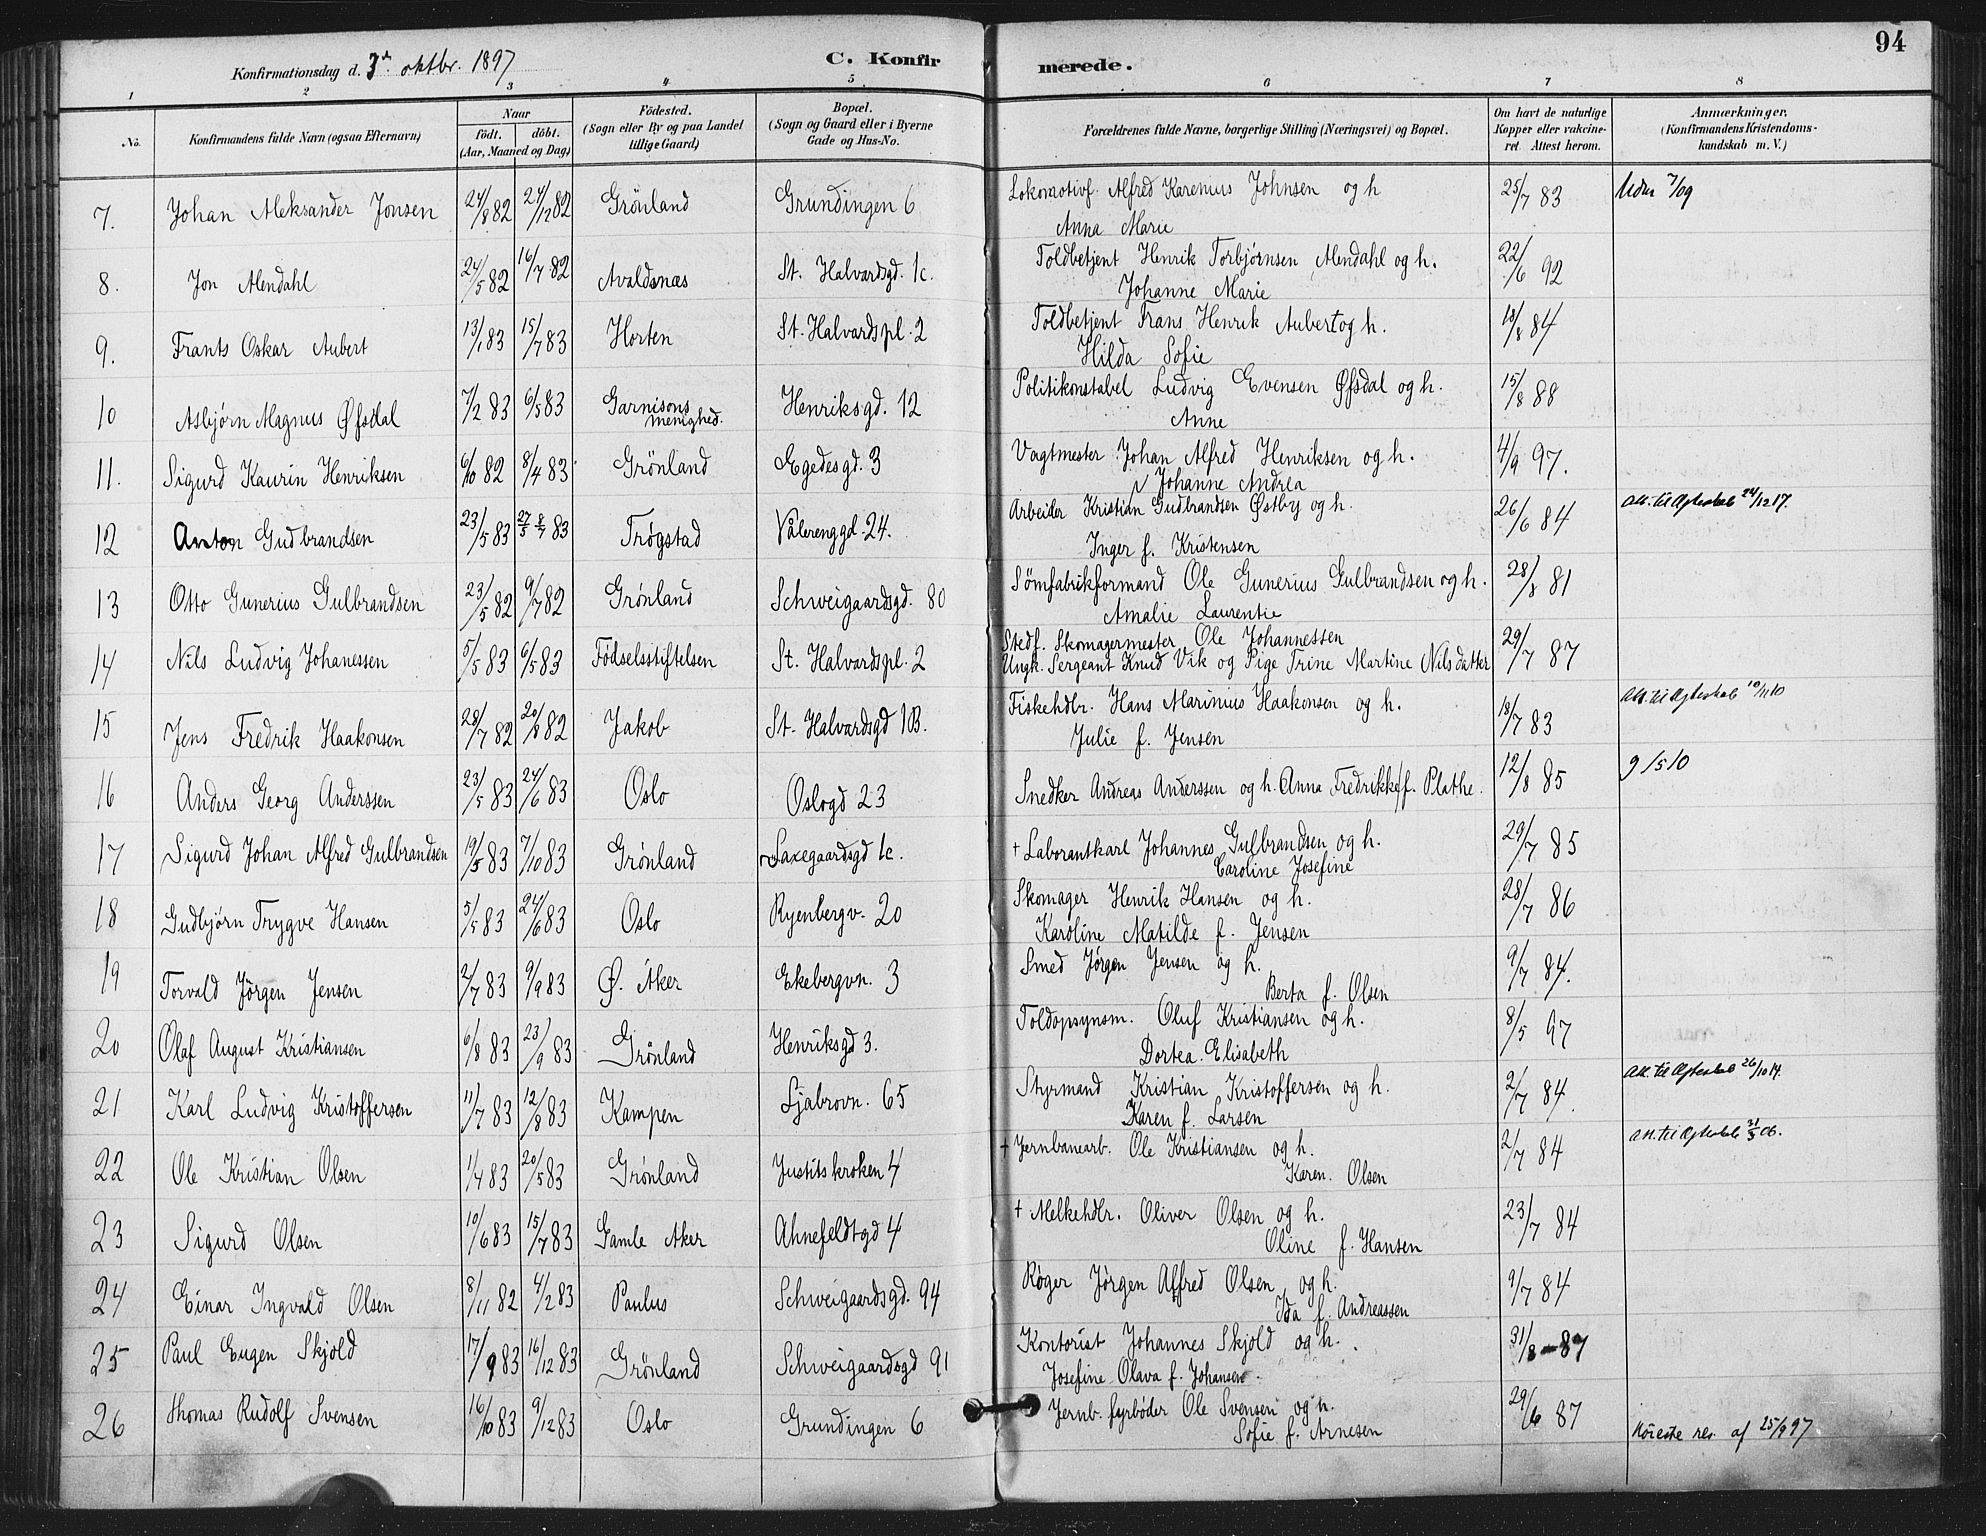 94
Konfirmationsdag d. 3die oktbr. 1897 C. Konfirmerede.
1 2 3 4 5 6 7 8
No. Konfirmandens fulde Navn (ogsaa Efternavn) Naar født. døbt. (Aar, Maaned og Dag) Fødested. (Sogn eller By og paa Landet tillige Gaard) Bopæl. (Sogn og Gaard eller i Byerne Gade og Hus-No. Forældrenes fulde Navne, borgerlige Stilling (Næringsvei) og Bopæl. Om havt de naturlige Kopper eller vakcineret. Attest herom. Anmærkninger. (Konfirmandens Kristendomskundskab m. V.)
7. Johan Aleksander Jonsen 24/8 82 24/12 82 Grönland Grundingen 6 Lokomotivf. Alfred Karenius Johnsen og h Anna Marie 25/7 83 Udm 7/09
8. Jon Alendahl 24/5 82 16/7 82 Avaldsnæs St. Halvardsgd. 1c. Toldbetjent Henrik Torbjörnsen Alendahl og h. Johanne Marie 22/6 92
9. Frants Oskar Aubert 13/1 83 15/7 83 Horten St. Halvardspl. 2 Toldbetjent Frans Henrik Aubert og h. Hilda Sofie 18/8 84
10 Asbjørn Magnus Øfsdal 7/2 83 6/5 83 Garnisons menighed. Henriksgd. 12 Politikonstabel Ludvig Evensen Øfsdal og h. Anne 15/8 88
11. Sigurd Kaurin Henriksen 6/10 82 8/4 83 Grönland Egedesgd. 3 Vagtmester Johan Alfred Henriksen og h. Johanne Andrea 4/9 97.
12 Anton Gudbrandsen 23/5 83 27/5 8/7 83 Trøgstad Vålerenggd. 24. Arbeider Kristian Gudbrandsen Østby og h. Inger f. Kristensen 26/6 84 Att. til Ægteskab 24/12 17.
13 Otto Gunerius Gulbrandsen 23/5 82 9/7 82 Grønland Schweigaardsgd. 80 Sömfabrikformand Ole Gunerius Gulbrandsen og h. Amalie Laurentie 28/8 81
14 Nils Ludvig Johanessen 5/5 83 6/5 83 Födselsstiftelsen St. Halvardspl. 2 Stedf. Skomagermester Ole Johannessen Ungk. Sergeant Knud Vik og Pige Trine Martine Nilsdatter 29/7 87
15 Jens Fredrik Haakonsen 28/7 82 20/8 82 Jakob St. Halvardsgd 1B. Fiskehdlr. Hans Marinius Haakonsen og h. Julie f. Jensen 18/7 83 Att. til Ægteskab 10/11 10
16 Anders Georg Anderssen 23/5 83 24/6 83 Oslo Oslogd 23 Snedker Andreas Anderssen og h. Anna Fredrikke f. Plathe. 12/8 85 9/5 10
17 Sigurd Johan Alfred Gulbrandsen 19/5 83 7/10 83 Grönland Saxegaardsgd 1c. † Laborantkarl Johannes Gulbrandsen og h. Caroline Josefine 29/7 85
18 Gudbjörn Trygve Hansen 5/5 83 24/6 83 Oslo Ryenbergv. 20 Skomager Henrik Hansen og h. Karoline Matilde f. Jensen 28/7 86
19 Torvald Jörgen Jensen 2/7 83 9/9 83 Ø. Aker Ekebergvn. 3 Smed Jörgen Jensen og h. Berta f. Olsen 9/7 84.
20 Olaf August Kristiansen 6/8 83 23/9 83 Grönland Henriksgd 3. Toldopsynsm. Oluf Kristiansen og h. Dortea Elisabeth 8/5 97
21 Karl Ludvig Kristoffersen 11/7 83 12/8 83 Kampen Ljabrovn. 65 Styrmand Kristian Kristoffersen og h. Karen f. Larsen 2/7 84. Att. til Ægteskab 26/10 14.
22 Ole Kristian Olsen 1/4 83 20/5 83 Grönland Justitskroken 4 † Jernbanearb. Ole Kristiansen og h. Karen Olsen 2/7 84 Att. til Ægteskab 21/3 06.
23 Sigurd Olsen 10/6 83 15/7 83 Gamle Aker Ahnefeldtgd 4 † Melkehdlr. Oliver Olsen og h. Oline f. Hansen 23/7 84
24 Einar Ingvald Olsen 8/11 82 4/2 83 Paulus Schweigaardsgd. 94 Røger Jörgen Alfred Olsen og h. Ida f. Andreassen 9/7 84
25 Paul Eugen Skjold 17/9 83 16/12 83 Grönland Schweigaardsgd 91 Kontorist Johannes Skjold og h. Josefine Olava f. Johansen 31/8 87
26 Thomas Rudolf Svensen 16/10 83 9/12 83 Oslo Grundingen 6 Jernb. fyrböder Ole Svensen og h. Sofie f. Arnesen 29/6 87 res. af 25/9 97